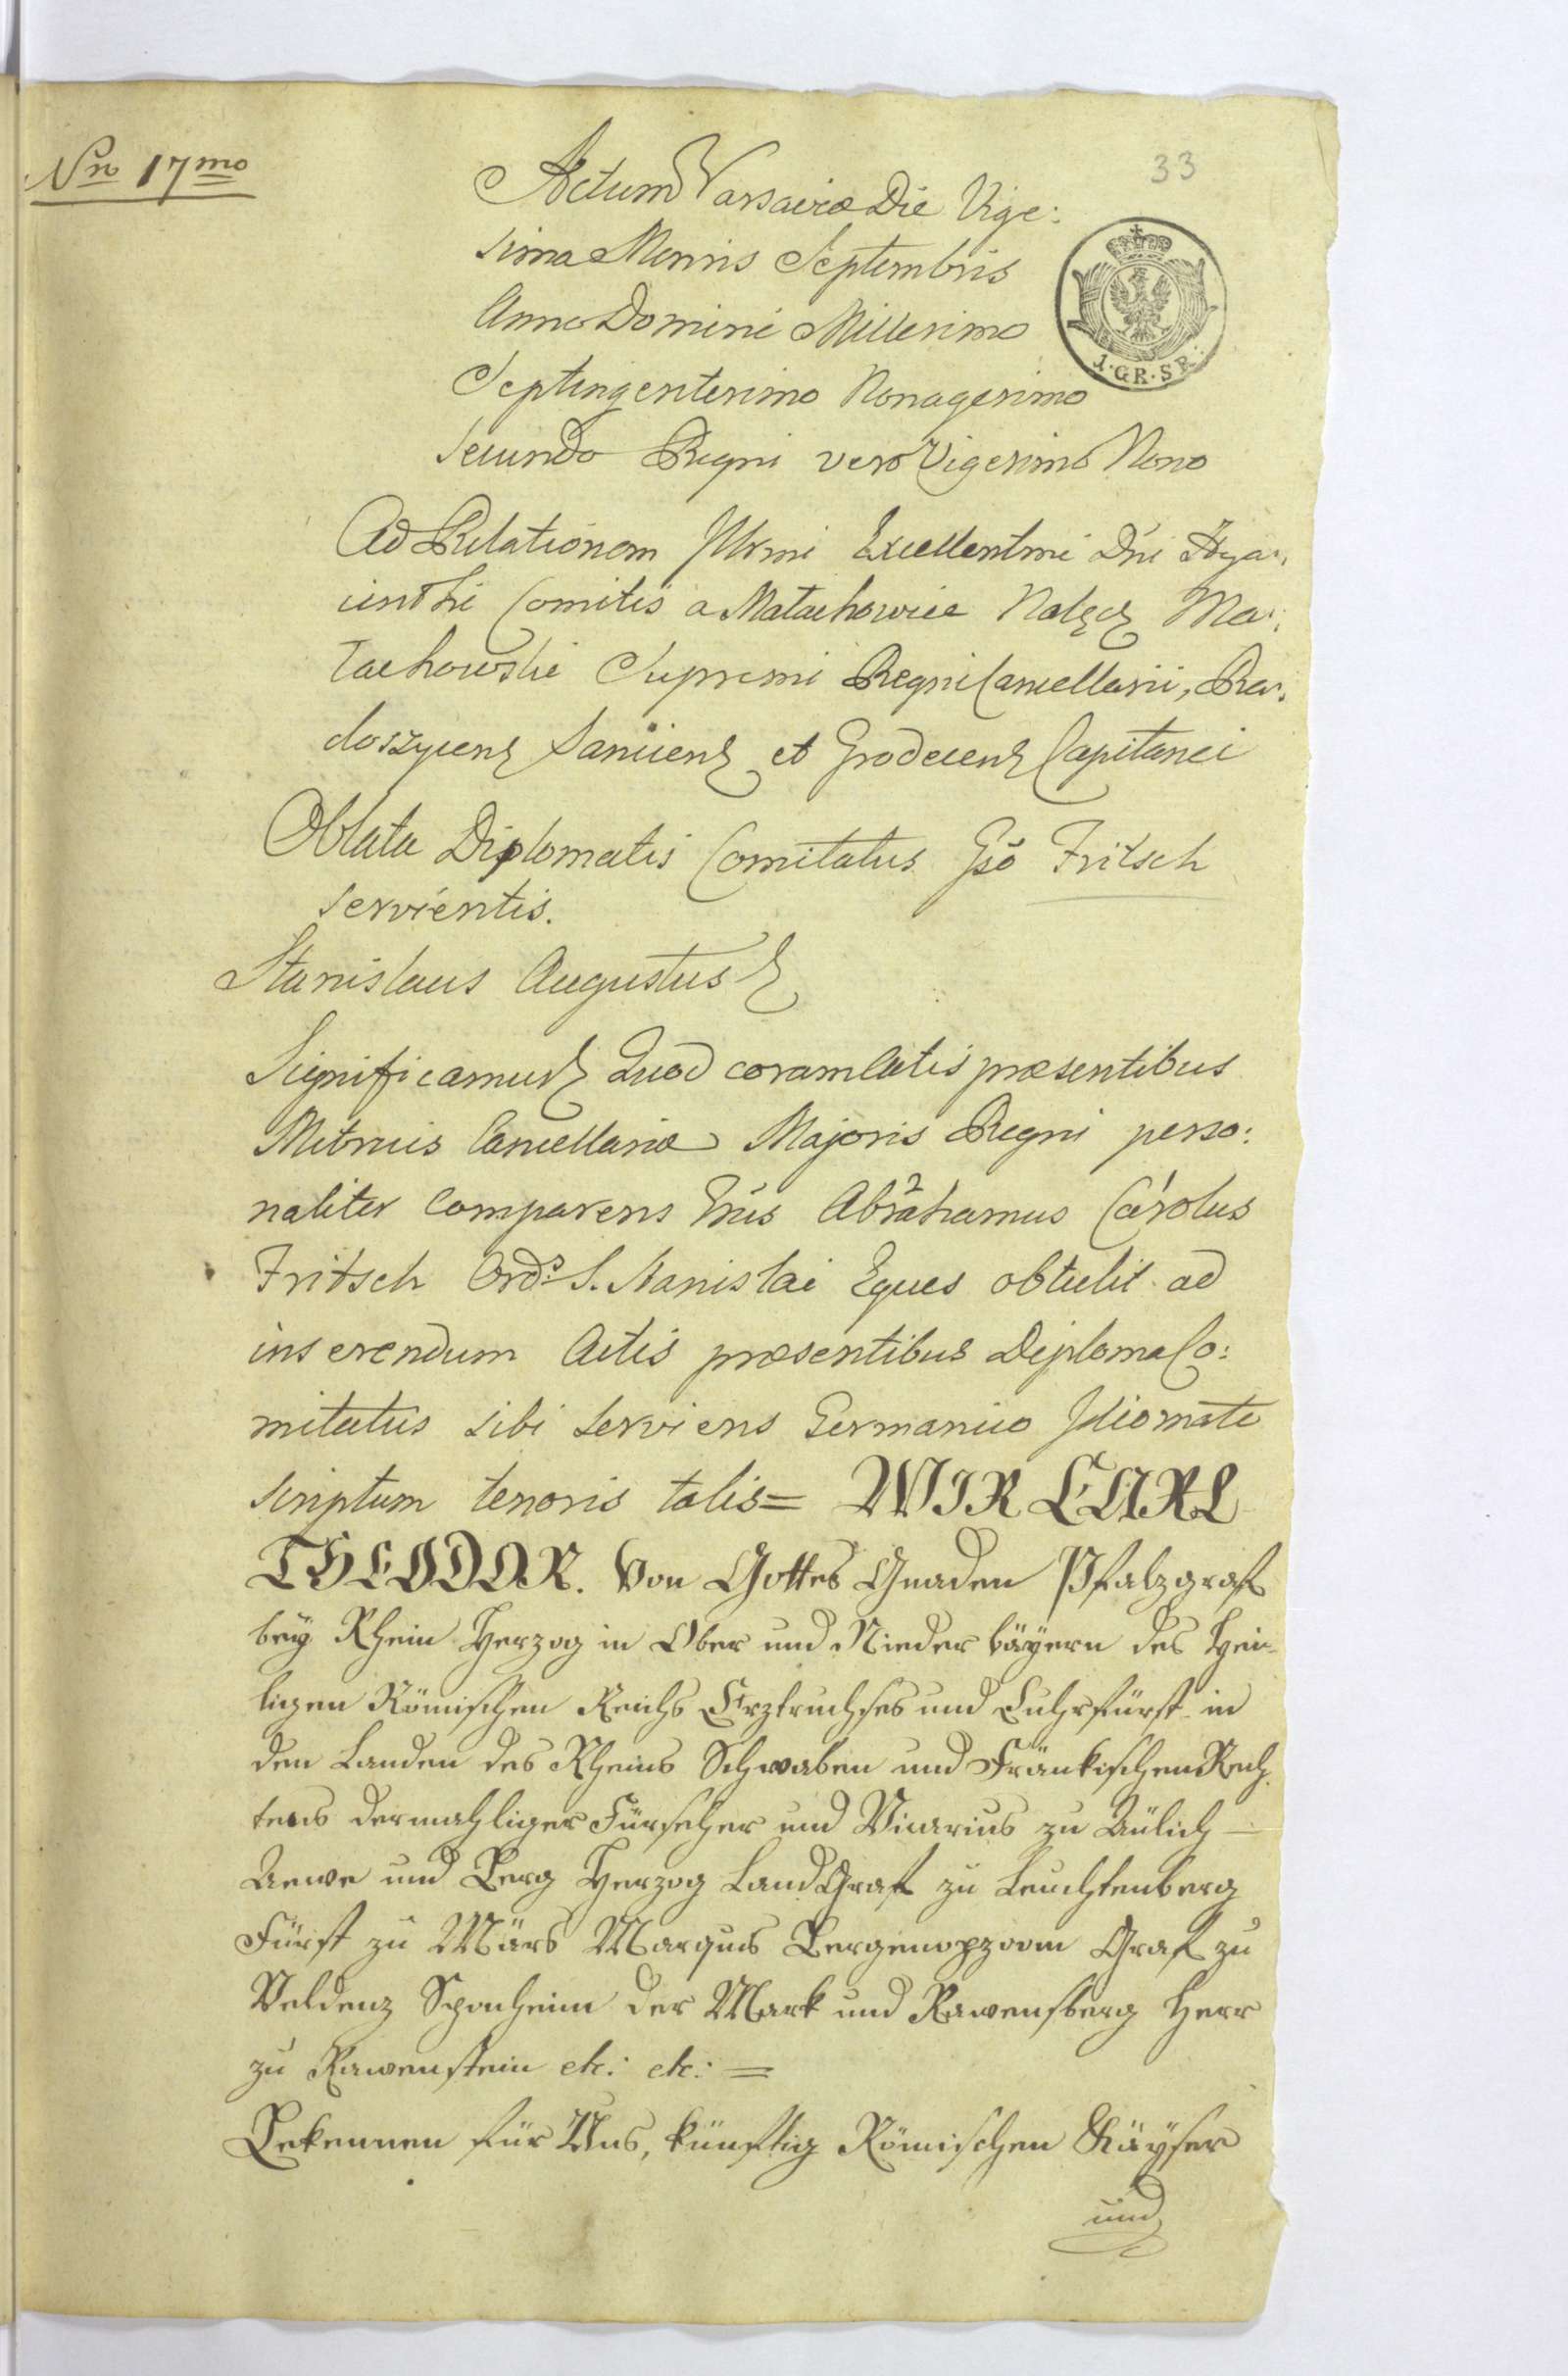 Nro 17mo
33
Actum Varsaviæ Die Vige:
sima Mensis Septembris
Anno Domini Millesimo
Septingentesimo Nonagesimo
secundo Regni vero Vigesimo Nono
1·GR·SR·
Ad Relationem Illrmi Excellentmi Dni Hya:
cinthi Comitis a Małachowice Nałęcz Ma:
łachowski Supremi Regni Cancellarii, Ra:
doszycen Sanicen et Grodecen Capitanei
Oblata Diplomatis Comitatus Gso Fritsch
servientis.
Stanislaus Augustus
Significamus Quod coram Actis præsentibus
Metrices Cancellariæ Majoris Regni perso:
naliter Comparens Abrahamus Carolus
Fritsch Ords S. Stanislai Eques obtulit ad
inserendum Actis præsentibus Diploma Co:
mitatus sibi serviens Germanico Idiomate
scriptum tenoris talis= WIR CARL
THEODOR. Von Gottes Gnaden Pfalzgraf
bey Rhein Herzog in Ober und Nieder bäyern des Hei-
ligen Römischen Reichs Erztruchses und Cuhrfürst in
den Landen des Rheins Schwaben und Fränkischen Rech
tens dermahliger Fürseher und Vicarius zu Gülich
Clewe und Berg Herzog Land Graf zu Leuchtenberg
Fürst zu Mörs Marquis Bergenopzoom Graf zu
Veldenz Sponheim der Mark und Rawensberg Herr
zu Rawenstein etc: etc: =
Bekennen für Uns, künftig Römischen Käyser
und